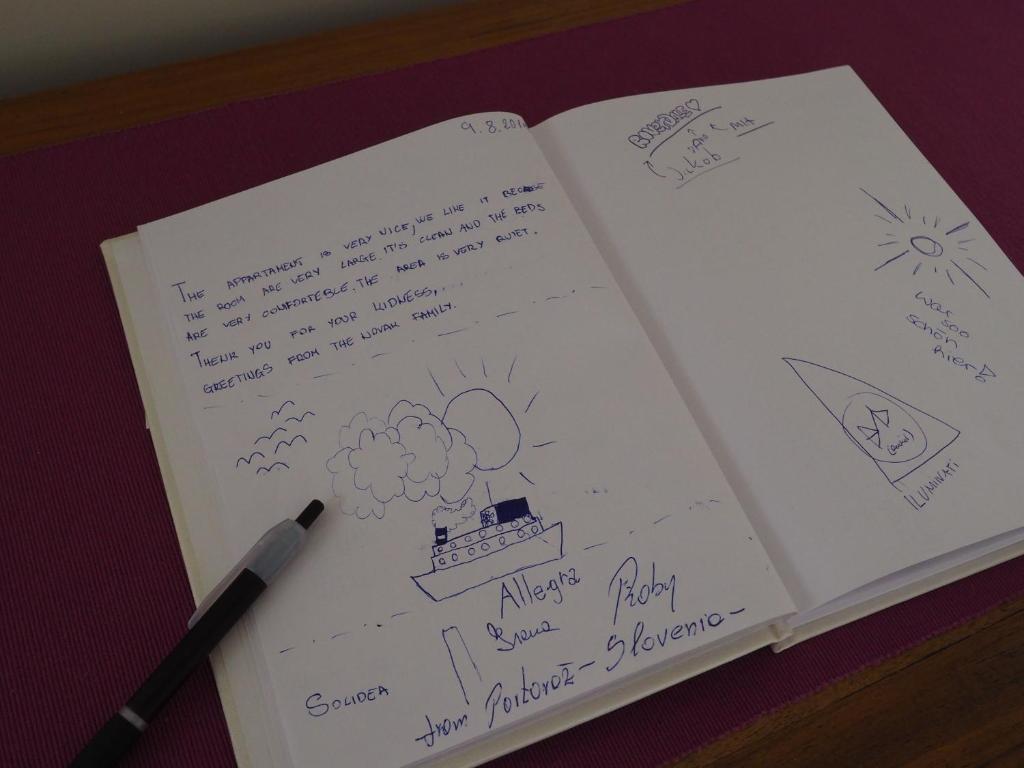 9.8.201
THE APPARTAMENT IS VERY NICE, WE LIKE IT BECAUSE
THE ROOM ARE VERY LARGE. IT'S CLEAN AND THE BEDS
ARE VERY COMFORTEBLE. THE AREA IS VERY QUIET.
THENK YOU FOR YOUR KIDNESS,...
GREETINGS FROM THE NOVAK FAMILY.
Allegra
Roby
SOLIDEA
from Portorož - Slovenia -
MIA
Jakob
War
soo
schön
hier!
ILUMINATI